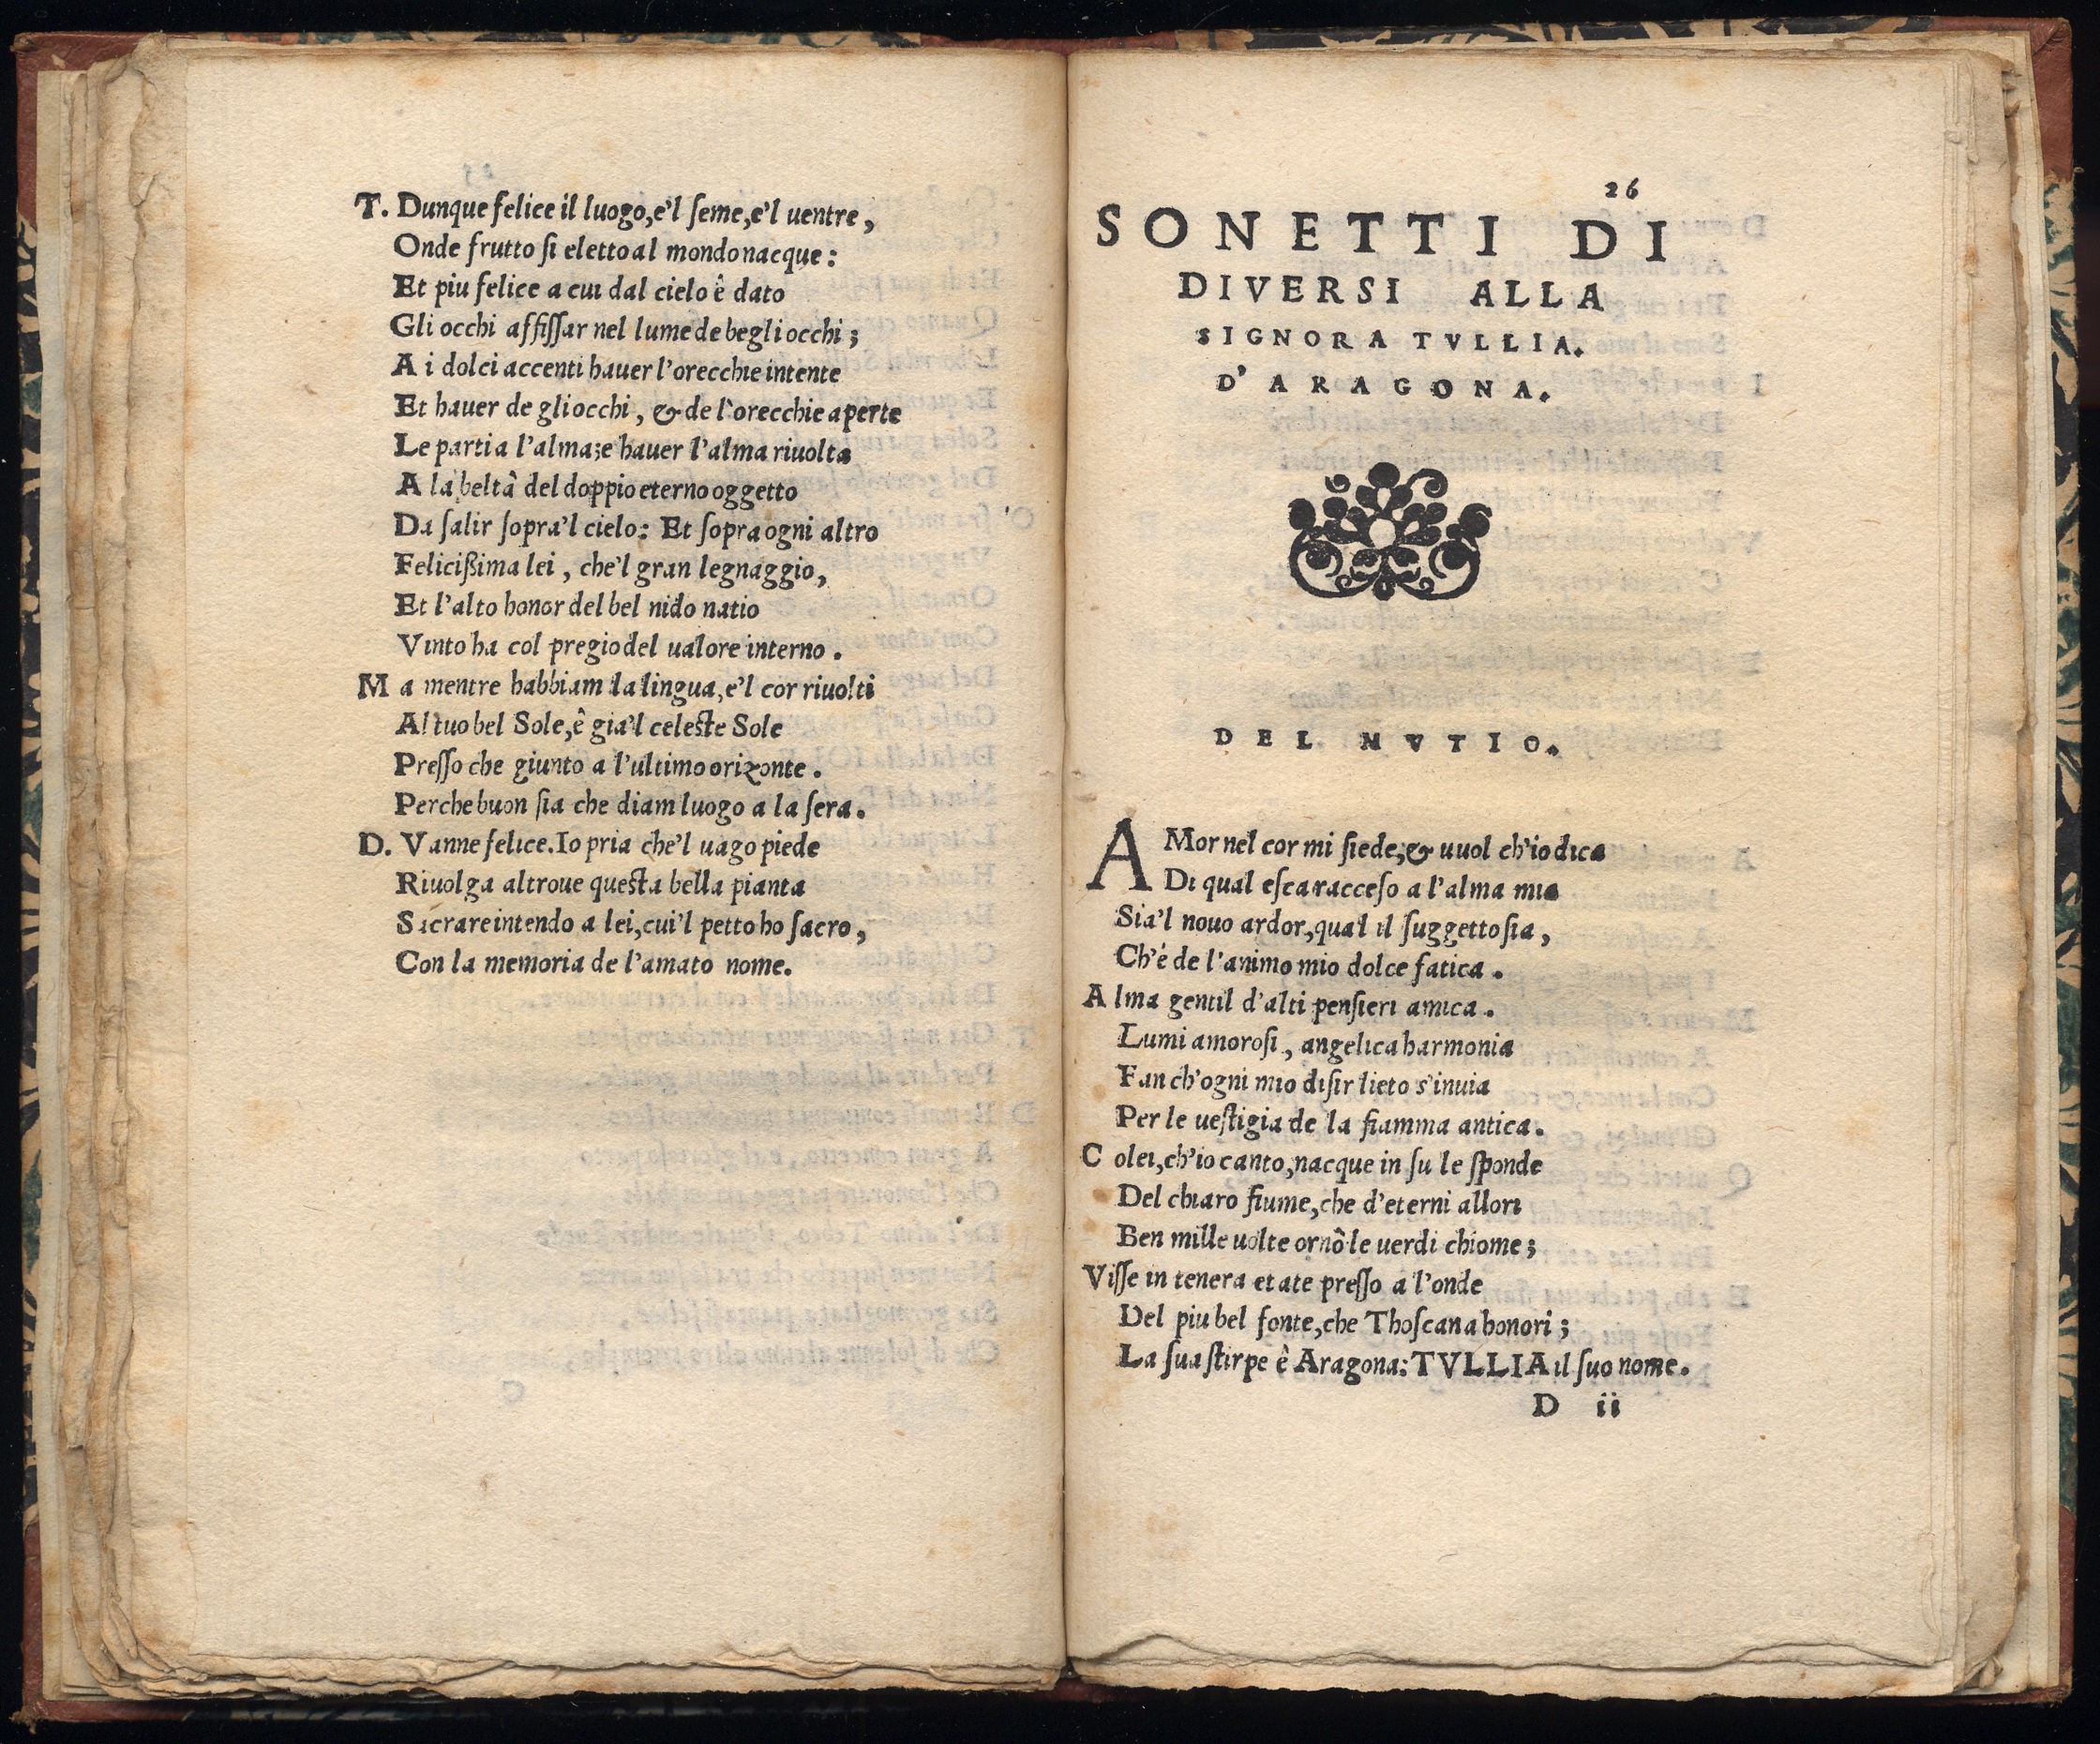 T. Dunque felice il luogo, e'l ſeme, e'l uentre,
Onde frutto ſi eletto al mondo nacque:
Et piu felice a cui dal cielo ê dato
Gli occhi affiſſar nel lume de begli occhi;
A i dolci accenti hauer l'orecchie intente
Et hauer de gliocchi, & de l'orecchie aperte
Le parti a l'alma; e hauer l'alma riuolta
A la beltâ del doppio eterno oggetto
Da ſalir ſopra'l cielo: Et ſopra ogni altro
Felicißima lei, che'l gran legnaggio,
Et l'alto honor del bel nido natio
Vinto ha col pregio del ualore interno.
M a mentre habbiam la lingua, e'l cor riuolti
Al tuo bel Sole, ê gia'l celeste Sole
Preſſo che giunto a l'ultimo orizonte.
Perche buon ſia che diam luogo a la ſera.
D. Vanne felice. Io pria che'l uago piede
Riuolga altroue questa bella pianta
Sacrare intendo a lei, cui'l petto ho ſacro,
Con la memoria de l'amato nome.
26
SONETTI DI
DIVERSI ALLA
SIGNORA TVLLIA.
D'ARAGONA.
DEL MVTIO.
AMor nel cor mi ſiede; & uuol ch'io dica
Di qual eſca racceſo a l'alma mia
Sia'l nouo ardor, qual il ſuggetto ſia,
Ch'é de l'animo mio dolce fatica.
A lma gentil d'alti penſieri amica.
Lumi amoroſi, angelica harmonia
Fan ch'ogni mio diſir lieto s'inuia
Per le ueſtigia de la fiamma antica.
C olei, ch'io canto, nacque in ſu le ſponde
Del chiaro fiume, che d'eterni allori
Ben mille uolte ornô le uerdi chiome;
Viſſe in tenera etate preſſo a l'onde
Del piu bel fonte, che Thoſcana honori;
La ſua ſtirpe ê Aragona: TVLLIA il ſuo nome.
D ii